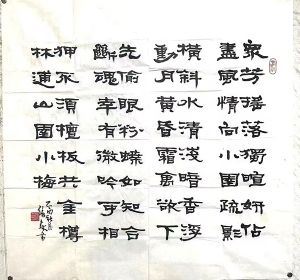 眾芳搖落獨暄妍佔
盡風情向小園疏影
橫斜水清淺暗香浮
動月黃昏霜禽欲下
先偷眼粉蝶如知合
斷魂幸有微吟可相
狎不須檀板共金樽
林逋山園小梅